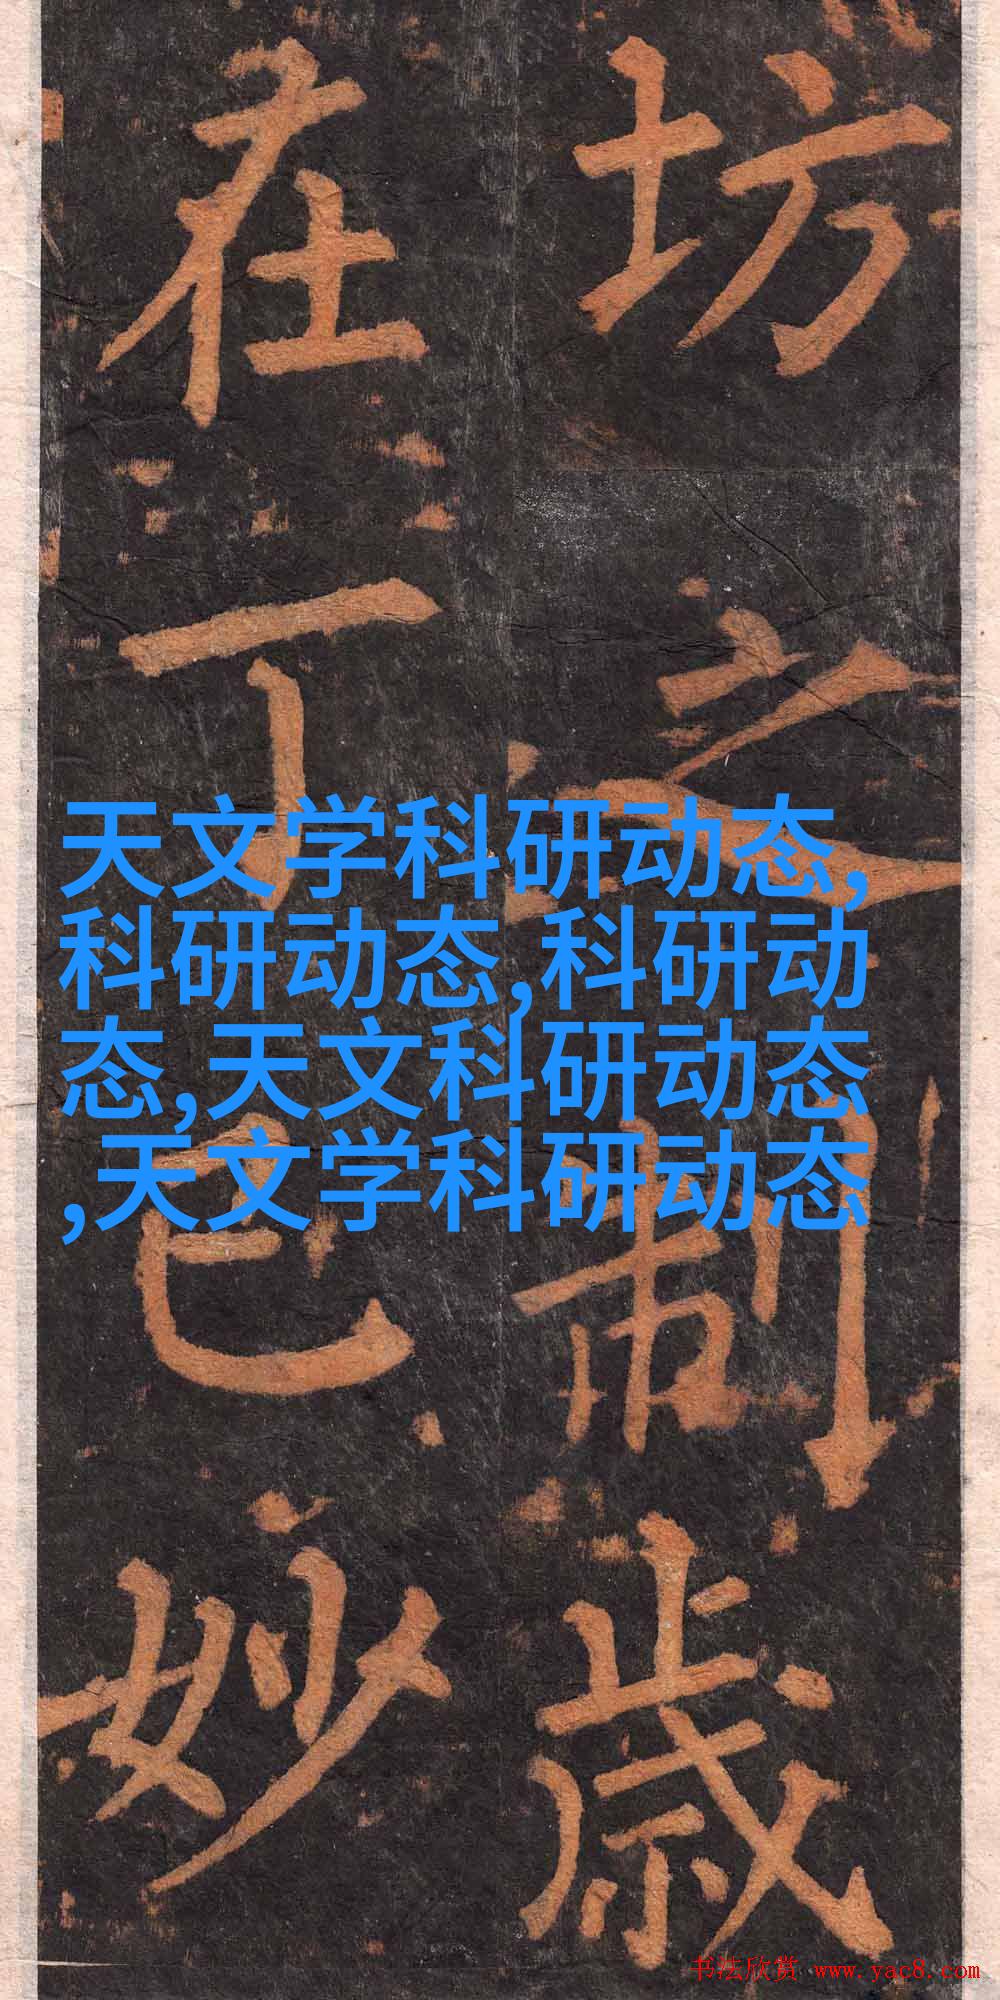 坊之制歲
在丁巳妙
天文学科研动态,
科研动态,科研动
态,天文科研动态
,天文学科研动态
书法欣赏 www.yac8.com